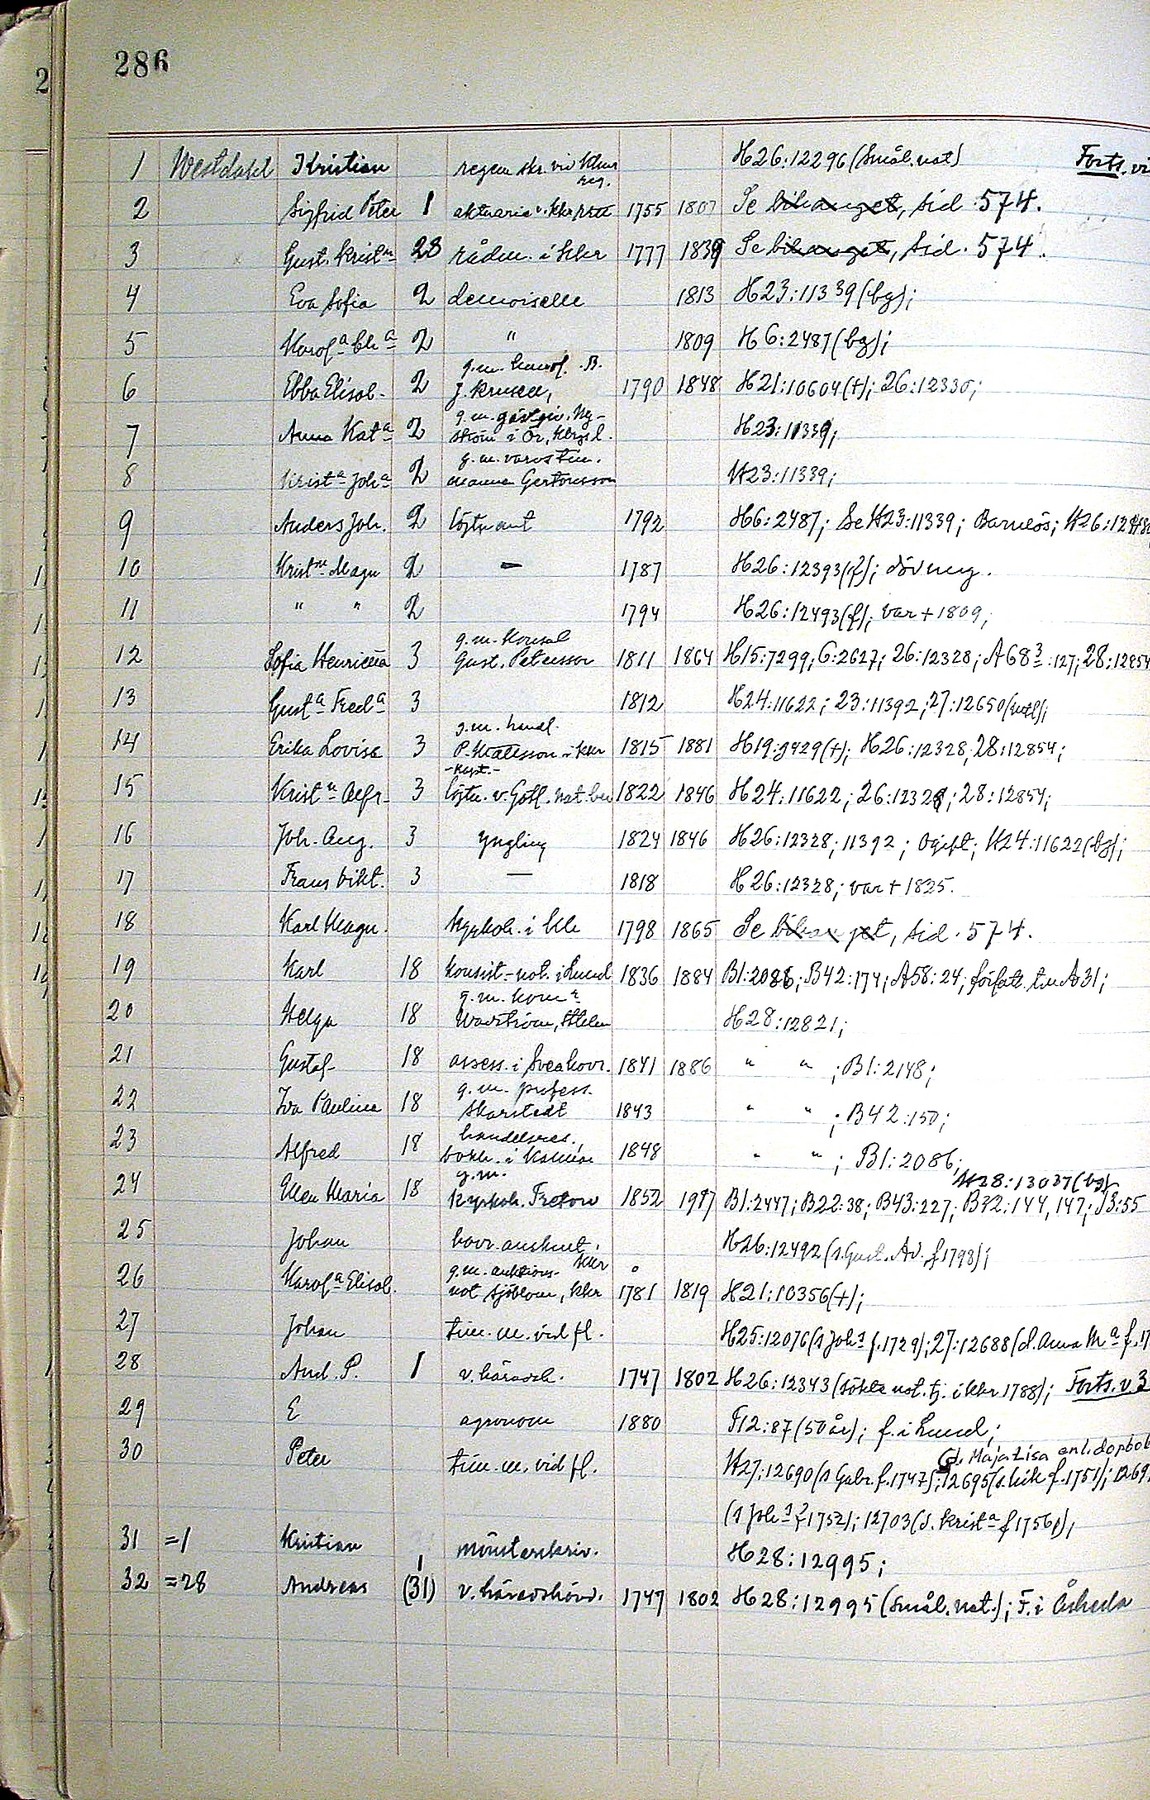 286
1 Westdahl Kristian regem. skr. vid Klmr reg. H26:12296 (Smål. nat) Forts. vi
2 Sigfrid Peter 1 aktuarie v. Klmr 1755 1807 Se bihanget, sid. 574.
3 Gust. Krist:n 28 rådm. i Klmr 1777 1839 Se bihanget, sid. 574.
4 Eva Sofia 2 demoiselle 1813 H23:11339 (bg);
5 Karol:a Chr:a 2 " 1809 H6:2487 (bg);
6 Ebba Elisab. 2 g.m. B. J. Kruser, 1790 1848 H21:10604 (+); 26:12330;
7 Anna Kat:a 2 g.m. gästgiv. Ny- ström i Ör, H23:11339;
8 Krist:a Joh:a 2 g.m. varvs tim. manne Gertonsson H23:11339;
9 Anders Joh. 2 löjtnant 1792 H6:2487; Se H23:11339; Barnlös; H26:12
10 Krist:n Magn 2 — 1787 H26:12393 (f); döv ung.
11 " " 2 1794 H26:12493 (f); var + 1809;
12 Sofia Henrietta 3 g.m. Konsul Gust. Petersson 1811 1864 H15:7299; 6:2627; 26:12328; A68 3:127; 28:12854
13 Gust:a Fred:a 3 1812 H24:11622; 23:11392; 27:12650 (utl);
14 Erika Lovisa 3 g.m. handl. P. Mattsson i Klmr 1815 1881 H19:9429 (+); H26:12328, 28:12854;
15 Krist:n Alfr. 3 -kust.- löjtn. v. Gotl. nat. bev 1822 1846 H24:11622; 26:12328; 28:12854;
16 Joh. Aug. 3 yngling 1824 1846 H26:12328; 11392; Ogift; H24:11622 (bg);
17 Frans Vikt. 3 — 1818 H26:12328; var + 1825.
18 Karl Magn. kyrkoh. i 1798 1865 Se bihanget, sid. 574.
19 Karl 18 konsist-not. i Lund 1836 1884 B1:2086; B42:174; A58:24; författ. t.m A31;
20 Helga 18 g.m. Wadström, H28:12821;
21 Gustaf 18 assess. i Svea hovr. 1841 1886 " " ; B1:2148;
22 Ida Paulina 18 g.m. profess. Skarstedt 1843 " " ; B42:150;
23 Alfred 18 handelsres. bokh. i Kalmar 1848 " " ; B1:2086;
24 Ellen Maria 18 g.m. Kyrkoh. Fretow 1852 1917 H28:13037 (bg) B1:2447; B22:38; B43:227; B42:144, 147; J3:55
25 Johan hovr. auskult. H26:12492 (s. Gust. Ad. f 1798);
26 Karol:a Elisab. g.m. auktions- not Sjöblom, Klmr 1781 1819 H21:10356 (+);
27 Johan tim. m. vid fl. H25:12076 (s Joh:s f. 1729); 27:12688 (d. Anna M:a f. 17
28 And. P. 1 v. häradsh. 1747 1802 H26:12343 (sökte not. tj. i Klmr 1788); Forts. v 3
29 E agronom 1880 F12:87 (50 år); f. i Lund;
30 Peter tim. m. vid fl. (d. Maja Lisa enl. dopbok H27:12690 (s Gabr. f. 1747); 12695 (s. Erik f. 1751); 1269
(s Joh:s f 1752); 12703 (d. Krist:a f 1756);
31 =1 Kristian mönsterskriv. H28:12995;
32 =28 Andreas 1 (31) v. häradshövd. 1747 1802 H28:12995 (Smål. nat.); F. i Åsheda